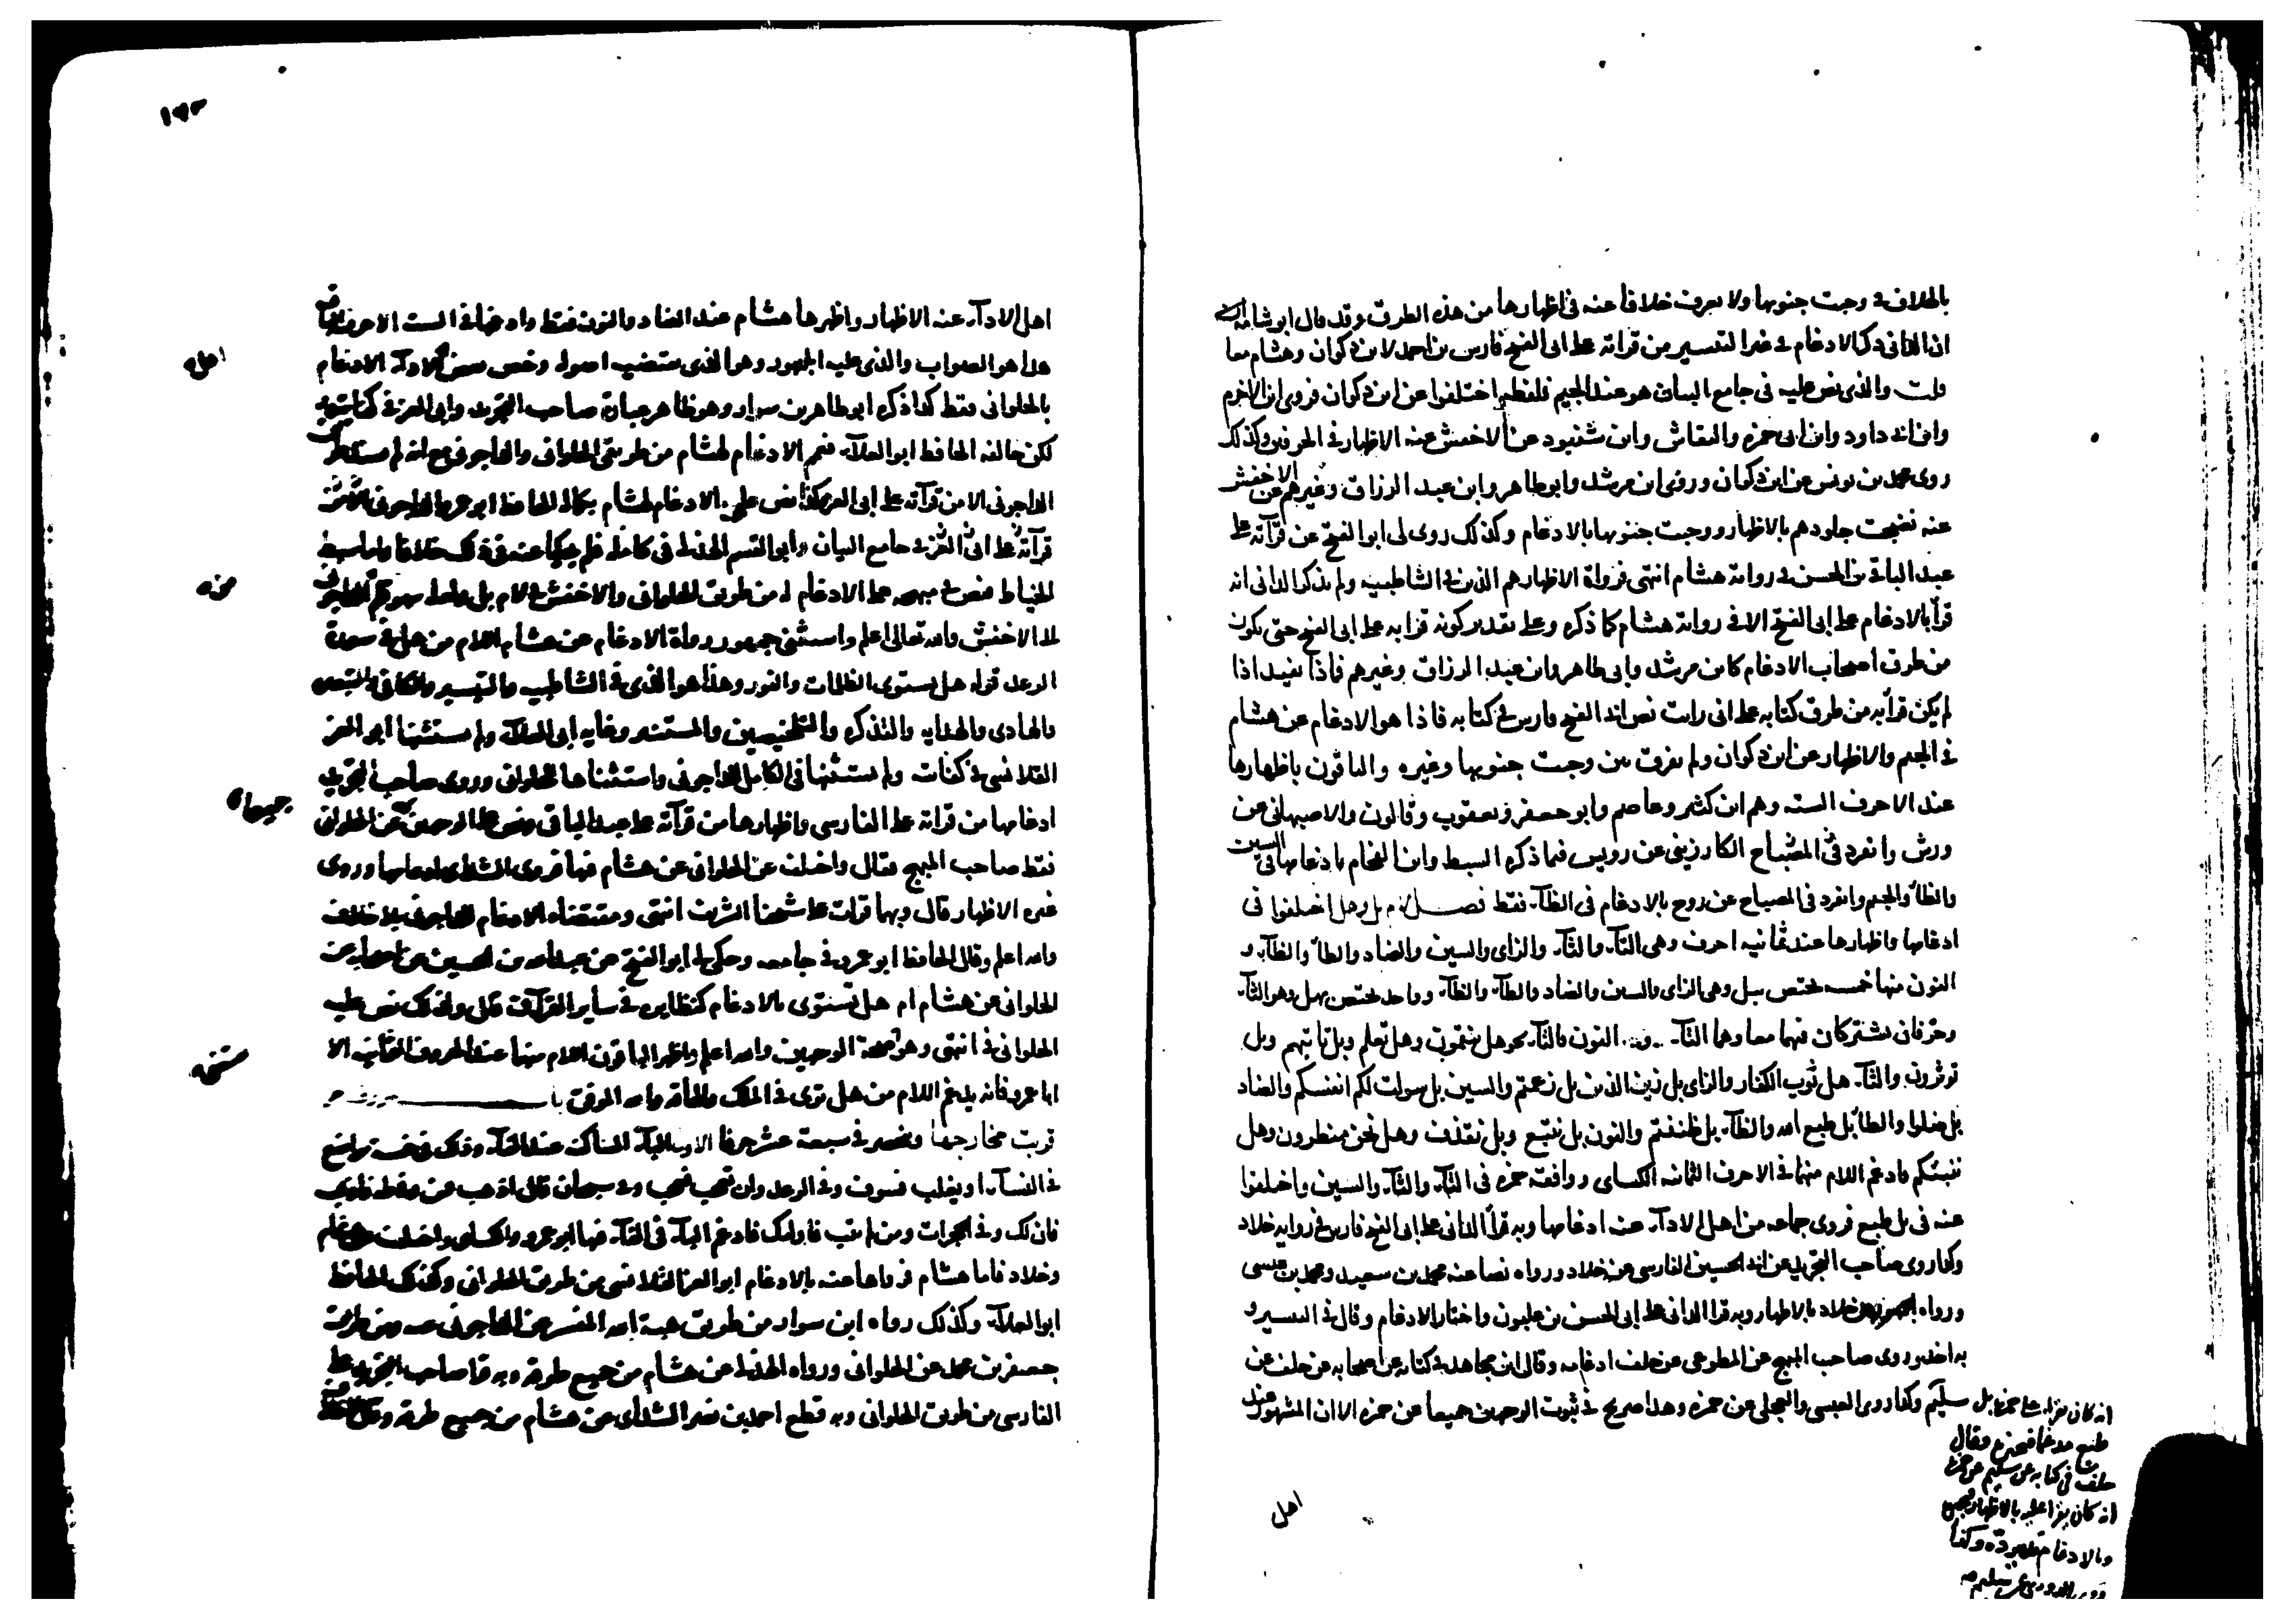 بالخلاف في وجبت جنوبها ولا نعرف خلافا عنه في اظهارها من هذه الطرق وقد قال ابو شامة
ان الداني ذكر الادغام في غير التيسير من قراءته على ابي الفتح فارس بن احمد لابن ذكوان وهشام معا
قلت والذي نص عليه في جامع البيان هو عند الجيم فلفظه اختلفوا عن ابن ذكوان فروى ابن الاخرم
وابن ابي داود وابن ابي حمزة والنقاش وابن شنبوذ عن الاخفش عنه الاظهار في الحرفين وكذلك
روى محمد بن يونس عن ابن ذكوان وروى ابن مرشد وابو طاهر وابن عبد الرزاق وغيرهم عن الاخفش
عنه نضجت جلودهم بالاظهار ووجبت جنوبها بالادغام وكذلك روى لي ابو الفتح عن قراءته على
عبد الباقي بن الحسن في رواية هشام انتهى فرواة الاظهار هم الذين في الشاطبية ولم يذكر الداني انه
قرأ بالادغام على ابي الفتح الا في رواية هشام كما ذكره وعلى تقدير كونه قرا به على ابي الفتح حتى يكون
من طرق اصحاب الادغام كابن مرشد وابي طاهر وابن عبد الرزاق وغيرهم فماذا يفيد اذا
لم يكن قرا به من طرق كتابه على اني رايت نص ابي الفتح فارس في كتابه فاذا هو الادغام عن هشام
في الجيم والاظهار عن ابن ذكوان ولم يفرق بين وجبت جنوبها وغيره والباقون باظهارها
عند الاحرف الستة وهم ابن كثير وعاصم وابو جعفر ويعقوب وقالون والاصبهاني عن
ورش وانفرد في المصباح الكارزيني عن رويس فيما ذكره السبط وابن الفحام بادغامها في السين
والظاء والجيم وانفرد في المصباح عن روح بالادغام في الظاء فقط فصل لام بل وهل اختلفوا في
ادغامها واظهارها عند ثمانية احرف وهي التاء والثاء والزاي والسين والضاد والطاء والظاء و
النون منها خمسة تختص ببل وهي الزاي والسين والضاد والطاء والظاء وواحد يختص بهل وهو الثاء
وحرفان يشتركان فيهما معا وهما التاء و النون فالتاء نحو هل ينقمون وهل تعلم وبل تاتيهم وبل
توثرون والثاء هل ثوب الكفار والزاي بل زين الذين بل زعمتم والسين بل سولت لكم انفسكم والضاد
بل ضلوا والطاء بل طبع الله والظاء بل ظننتم والنون بل نتبع وبل نقذف وهل نحن منظرون وهل
ننبئكم فادغم اللام منهما في الاحرف الثمانية الكساي ووافقه حمزة في التاء والثاء والسين واختلفوا
عنه في بل طبع فروى جماعة من اهل الاداء عنه ادغامها وبه قرأ الداني على ابي الفتح فارس في رواية خلاد
وكذا روى صاحب التجريد عن ابي الحسين الفارسي عن خلاد ورواه نصا عنه محمد بن سعيد ومحمد بن عيسى
ورواه الجمهور عن خلاد بالاظهار وبه قرا الداني على ابي الحسن بن غلبون واختار الادغام وقال في التيسير و
به اخذ وروى صاحب المبهج عن المطوعي عن خلف ادغامه وقال ابن مجاهد في كتابه عن اصحابه عن خلف عن
سليم وكذا روى العبسي والعجلي عن حمزة وهذا صريح في ثبوت الوجهين جميعا عن حمزة الا ان المشهور عند
انه كان يقرا على حمزة بل
طبع مدغما فيجيزه وقال
خلف في كتابه عن سليم عن حمزة
انه كان يقرا عليه بالاظهار فيجيزه
وبالادغام فلا يرده وكذا
روى الدوري عن سليم
اهل
١٩٣
اهل الاداء عنه الاظهار واظهرها هشام عند الضاد والنون فقط وادغمها في الستة الاحرف الباقية
هذا هو الصواب والذي عليه الجمهور وهو الذي تقتضيه اصوله وخص بعض اهل الاداء الادغام
بالحلواني فقط كذا ذكره ابو طاهر بن سوار وهو ظاهر عبارة صاحب التجريد وابي العز في كفايته
لكن خالفه الحافظ ابو العلاء فعمم الادغام لهشام من طريقي الحلواني والداجوني مع انه لم يسند طريق
الداجوني الا من قراءته على ابي العز وكذا نص على الادغام لهشام بكماله الحافظ ابو عمرو الداني
في جامع البيان وابو القسم الهذلي في كامله فلم يحكيا عنه في ذلك خلافا واما سبط
الخياط فنص في مبهجه على الادغام له من طريق الحلواني والاخفش في لام بل
الاخفش والله تعالى اعلم واستثنى جمهور رواة الادغام عن هشام اللام من هل في سورة
الرعد قوله هل يستوي الظلمات والنور وهذا هو الذي في الشاطبية والتيسير والكافي والتبصرة
والهادي والهداية والتذكرة والتلخيصين والمستنير وغاية ابي العلاء ولم يستثنها ابو العز
القلانسي في كفايته ولم يستثنها في الكامل للداجوني واستثناها للحلواني وروى صاحب التجريد
ادغامها من قراءته على الفارسي واظهارها من قراءته على عبد الباقي ونص على الوجهين عن الحلواني
فقط صاحب المبهج فقال واختلف عن الحلواني عن هشام فيها فروى الشذائي ادغامها وروى
غيره الاظهار قال وبهما قرات على شيخنا الشريف انتهى ومقتضاه الادغام للداجوني بلا خلاف
والله اعلم وقال الحافظ ابو عمرو في جامعه وحكى لي ابو الفتح عن عبد الله بن الحسين عن اصحابه عن
الحلواني عن هشام ام هل تستوي بالادغام كنظايره في ساير القرآن قال وكذلك نص عليه
الحلواني في انتهى وهو صحة الوجهين والله اعلم واظهر الباقون اللام منها عند الحروف الثمانية الا
ابا عمرو فانه يدغم اللام من هل ترى في الملك والحاقة والله الموفق باب حروف
قربت مخارجها وتنحصر في سبعة عشر حرفا الاول الباء الساكنة عند الفاء وذلك في خمسة مواضع
في النساء او يغلب فسوف وفي الرعد وان تعجب فعجب وفي سبحان قال اذهب فمن
فان لك وفي الحجرات ومن لم يتب فاولئك فادغم الباء في الفاء فيها ابو عمرو والكساي واختلف عن هشام
وخلاد فاما هشام فرواها عنه بالادغام ابو العز القلانسي من طريق الحلواني وكذلك الحافظ
ابو العلاء وكذلك رواه ابن سوار من طريق هبة الله المفسر عن الداجوني عنه ومن طريق
جعفر بن محمد عن الحلواني ورواه الهذلي عن هشام من جميع طرقه وبه قرا صاحب التجريد على
الفارسي من طريق الحلواني وبه قطع احمد بن نصر الشذائي عن هشام من جميع طرقه وقال
اهل
جميعا